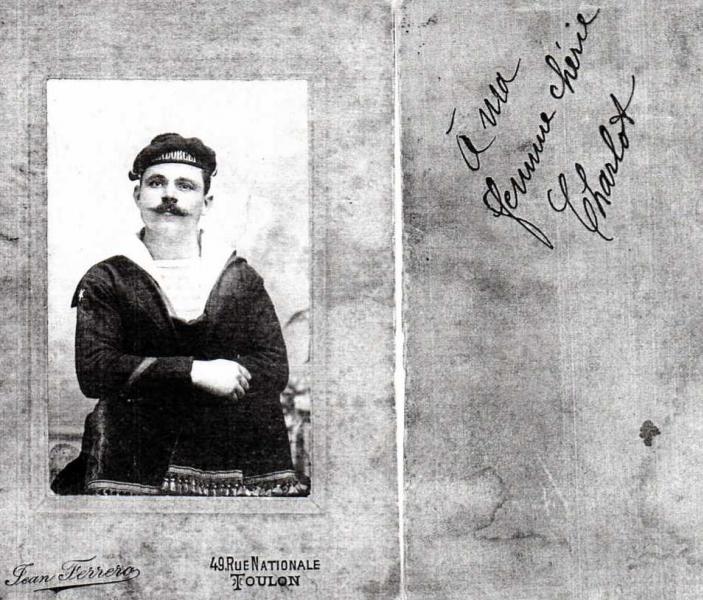 À ma
femme chérie
Charlot
Jean Ferrero
49, RUE NATIONALE
TOULON